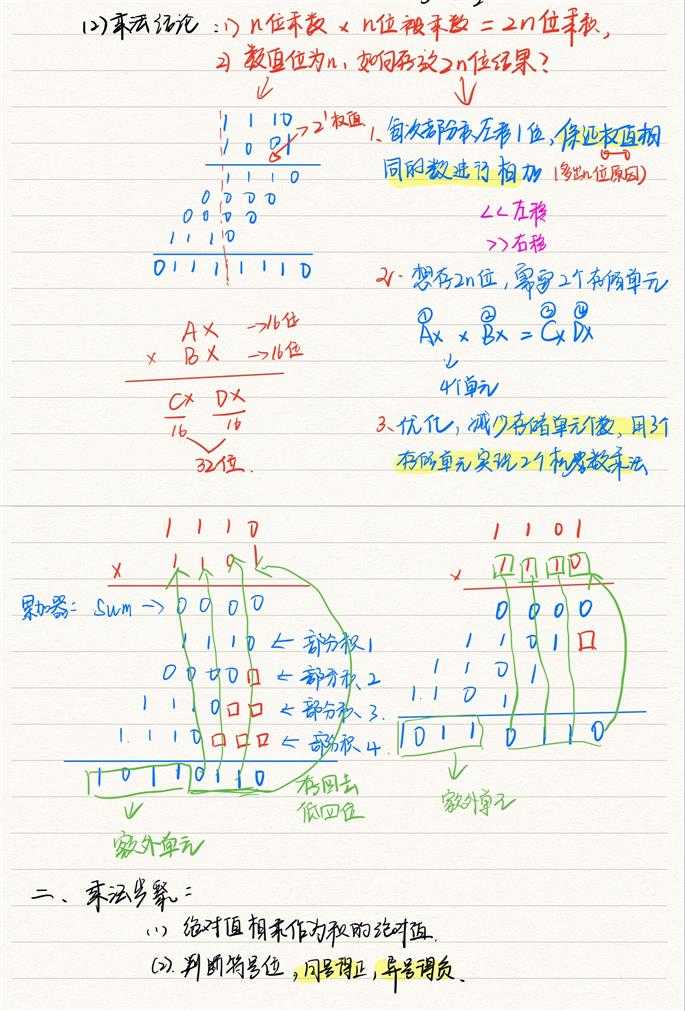 (2)乘法结论：1) n位乘数 × n位被乘数 = 2n位乘积,
2) 数值位为n，如何存放2n位结果？
1 1 1 0
1 0 0 1 > 2¹权值
1 1 1 0
0 0 0 0
0 0 0 0
1 1 1 0
0 1 1 1 1 1 1 0
AX →16位
× BX →16位
CX DX
16 16
32位.
1、每次部分积左移1位，保证权值相
同的数进行相加 (多出n位原因)
<<左移
>>右移
2、想存2n位，需要2个存储单元
① ② ③ ④
Ax × Bx = Cx Dx
4个单元
3、优化，减少存储单元个数，用3个
存储单元实现2个机器数乘法
1 1 1 0
× 1 1 0 1
累加器：Sum → 0 0 0 0
1 1 1 0 ← 部分积1
0 0 0 0 □ ← 部分积2
1 1 1 0 □ □ ← 部分积3.
1 1 1 0 □ □ □ ← 部分积4.
1 0 1 1 0 1 1 0
存回去
低四位
额外单元
1 1 0 1
× 1 1 1 0
0 0 0 0
1 1 0 1 □
1 1 0 1
1 1 0 1
1 0 1 1 0 1 1 0
额外单元
二、乘法步骤：
(1) 绝对值相乘作为积的绝对值.
(2). 判断符号位，同号得正，异号得负.